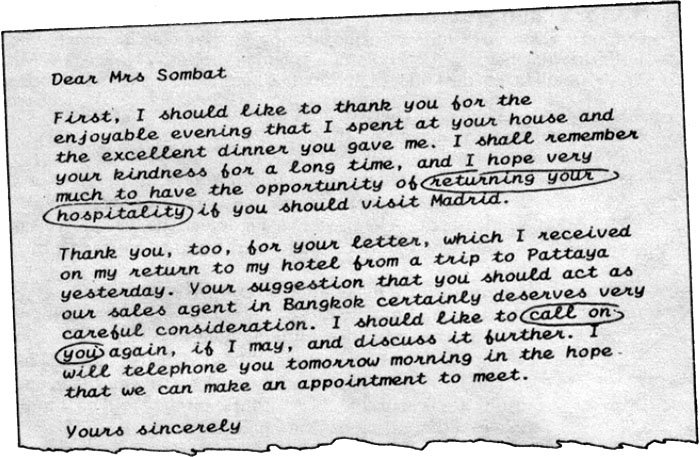 Dear Mrs Sombat
First, I should like to thank you for the
enjoyable evening that I spent at your house and
the excellent dinner you gave me. I shall remember
your kindness for a long time, and I hope very
much to have the opportunity of returning your
hospitality if you should visit Madrid.
Thank you, too, for your letter, which I received
on my return to my hotel from a trip to Pattaya
yesterday. Your suggestion that you should act as
our sales agent in Bangkok certainly deserves very
careful consideration. I should like to call on
you again, if I may, and discuss it further. I
will telephone you tomorrow morning in the hope
that we can make an appointment to meet.
Yours sincerely